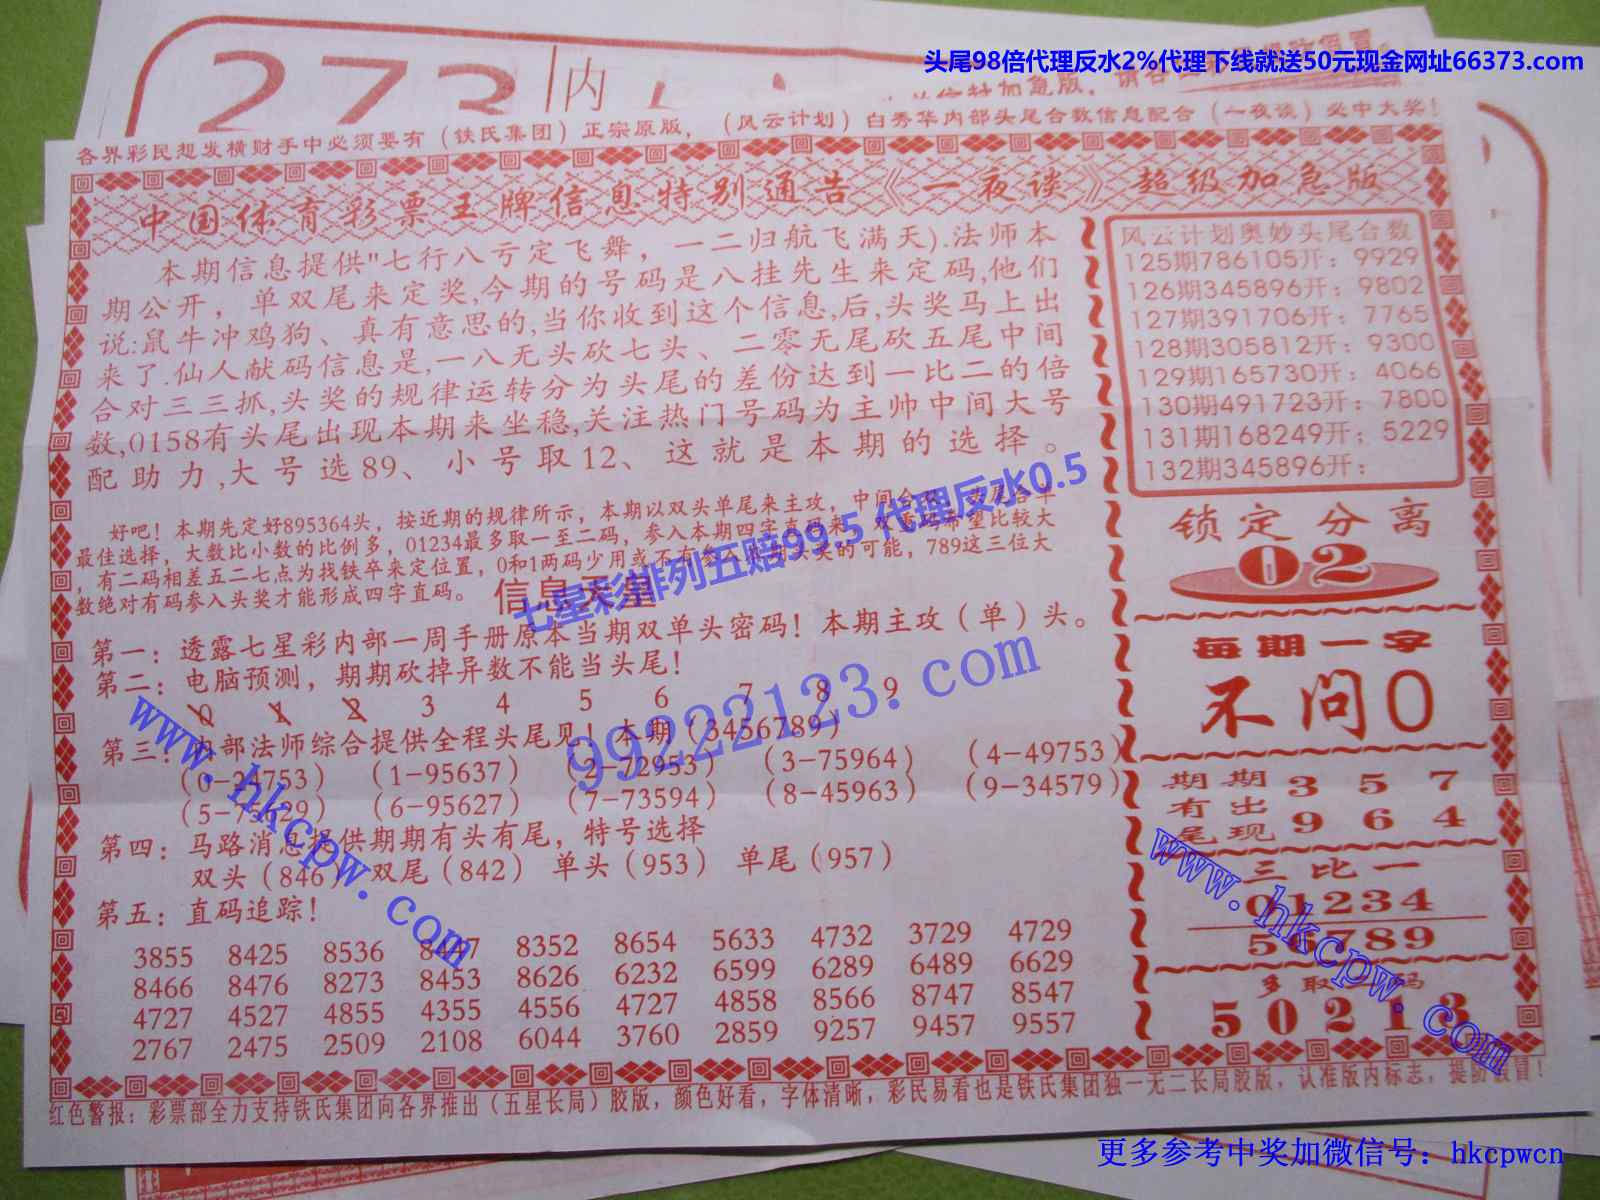 头尾98倍代理反水2%代理下线就送50元现金网址66373.com
273 内
各界彩民想发横财手中必须要有（铁氏集团）正宗原版，（风云计划）白秀华内部头尾合数信息配合（一夜谈）必中大奖！
中国体育彩票王牌信息特别通告《一夜谈》超级加急版
本期信息提供"七行八亏定飞舞，一二归航飞满天).法师本
期公开，单双尾来定奖,今期的号码是八挂先生来定码,他们
说:鼠牛冲鸡狗、真有意思的,当你收到这个信息,后,头奖马上出
来了.仙人献码信息是,一八无头砍七头、二零无尾砍五尾中间
合对三三抓,头奖的规律运转分为头尾的差份达到一比二的倍
数,0158有头尾出现本期来坐稳,关注热门号码为主帅中间大号
配助力,大号选89、小号取12、这就是本期的选择。
好吧！本期先定好895364头，按近期的规律所示，本期以双头单尾来主攻，中间合
最佳选择，大数比小数的比例多，01234最多取一至二码，参入本期四字直码来 比较大
，有二码相差五二七点为找铁卒来定位置，0和1两码少用或不 头奖的可能，789这三位大
数绝对有码参入头奖才能形成四字直码。
信息天皇
七星彩排列五赔99.5 代理反水0.5
第一：透露七星彩内部一周手册原本当期双单头密码！本期主攻（单）头。
第二：电脑预测，期期砍掉异数不能当头尾！
0 1 2 3 4 5 6 7 8 9
第三：内部法师综合提供全程头尾见！本期（3456789）
（0-24753）（1-95637）（2-72953）（3-75964）（4-49753）
（5-73629）（6-95627）（7-73594）（8-45963）（9-34579）
第四：马路消息提供期期有头有尾，特号选择
双头（846）双尾（842）单头（953）单尾（957）
第五：直码追踪！
3855 8425 8536 8447 8352 8654 5633 4732 3729 4729
8466 8476 8273 8453 8626 6232 6599 6289 6489 6629
4727 4527 4855 4355 4556 4727 4858 8566 8747 8547
2767 2475 2509 2108 6044 3760 2859 9257 9457 9557
风云计划奥妙头尾合数
125期786105开：9929
126期345896开：9802
127期391706开：7765
128期305812开：9300
129期165730开：4066
130期491723开：7800
131期168249开：5229
132期345896开：
锁定分离
02
每期一字
不问0
期期 3 5 7
有出
尾现 9 6 4
三比一
01234
56789
多取 码
50213
99222123.com
www.hkcpw.com
www.hkcpw.com
红色警报：彩票部全力支持铁氏集团向各界推出（五星长局）胶版，颜色好看，字体清晰，彩民易看也是铁氏集团独一无二长局胶版，认准版内标志，提防假冒！
更多参考中奖加微信号：hkcpwcn